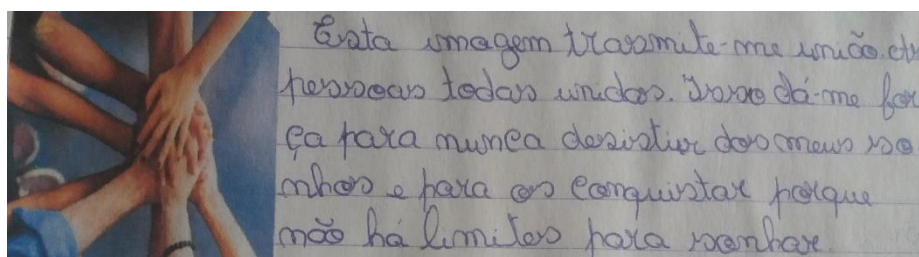 Esta imagem trasmite-me união. As
pessoas todas unidas. Isso dá-me for
ça para nunca desistir dos meus so
nhos e para os conquistar porque
não há limites para sonhar.